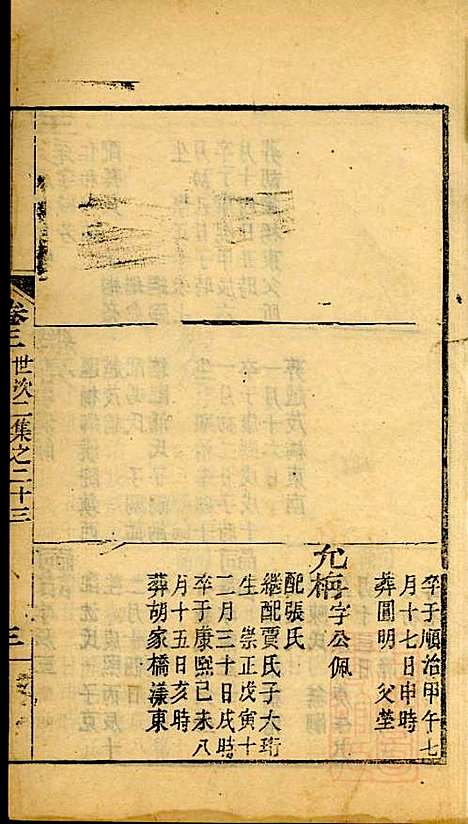 卒于順治甲午七
月十七日申時
葬圓明　父塋
允梅字公佩
配張氏
繼配賈氏子大珩
生　崇正戊寅十
二月三十日戌時
卒于康熙己未八
月十五日亥時
葬胡家橋漾東
卷三　世次二集之二十三
三